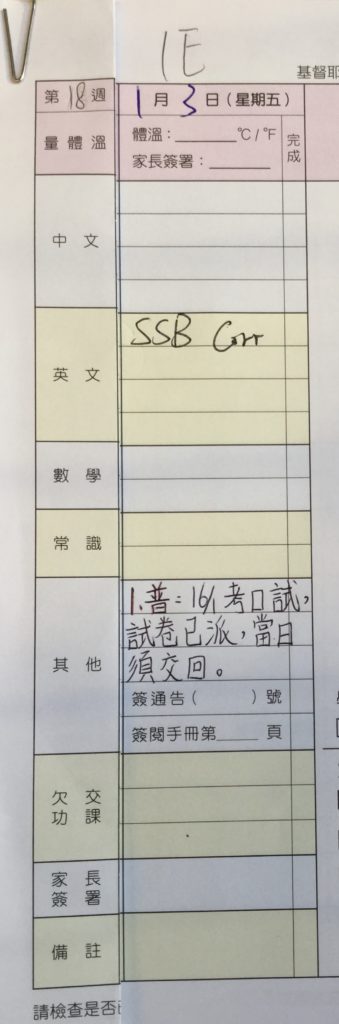 1E
基督耶
第18週
1月3日(星期五)
量體溫
體溫：______℃/℉
家長簽署：______
完成
中文
英文
SSB Corr
數學
常識
其他
1.普：16/1 考口試，
試卷已派，當日
須交回。
簽通告(　　)號
簽閱手冊第____頁
欠交
功課
家長
簽署
備註
請檢查是否已